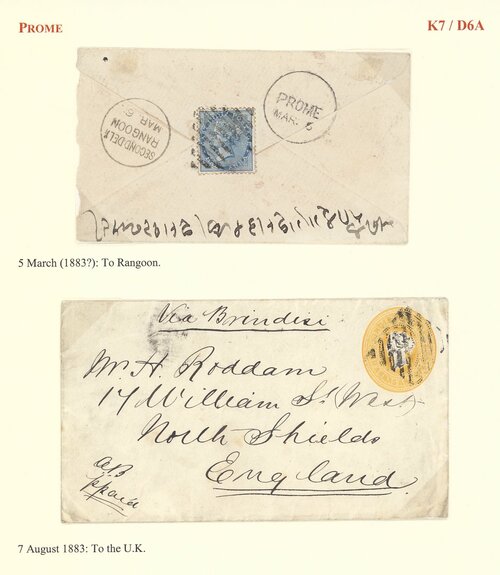 PROME
K7 / D6A
SECOND DELY
RANGOON
MAR 6
PROME
MAR. 5
5 March (1883?): To Rangoon.
Via Brindisi
Mr. H. Roddam
17 William St. West
North Shields
England.
7 August 1883: To the U.K.